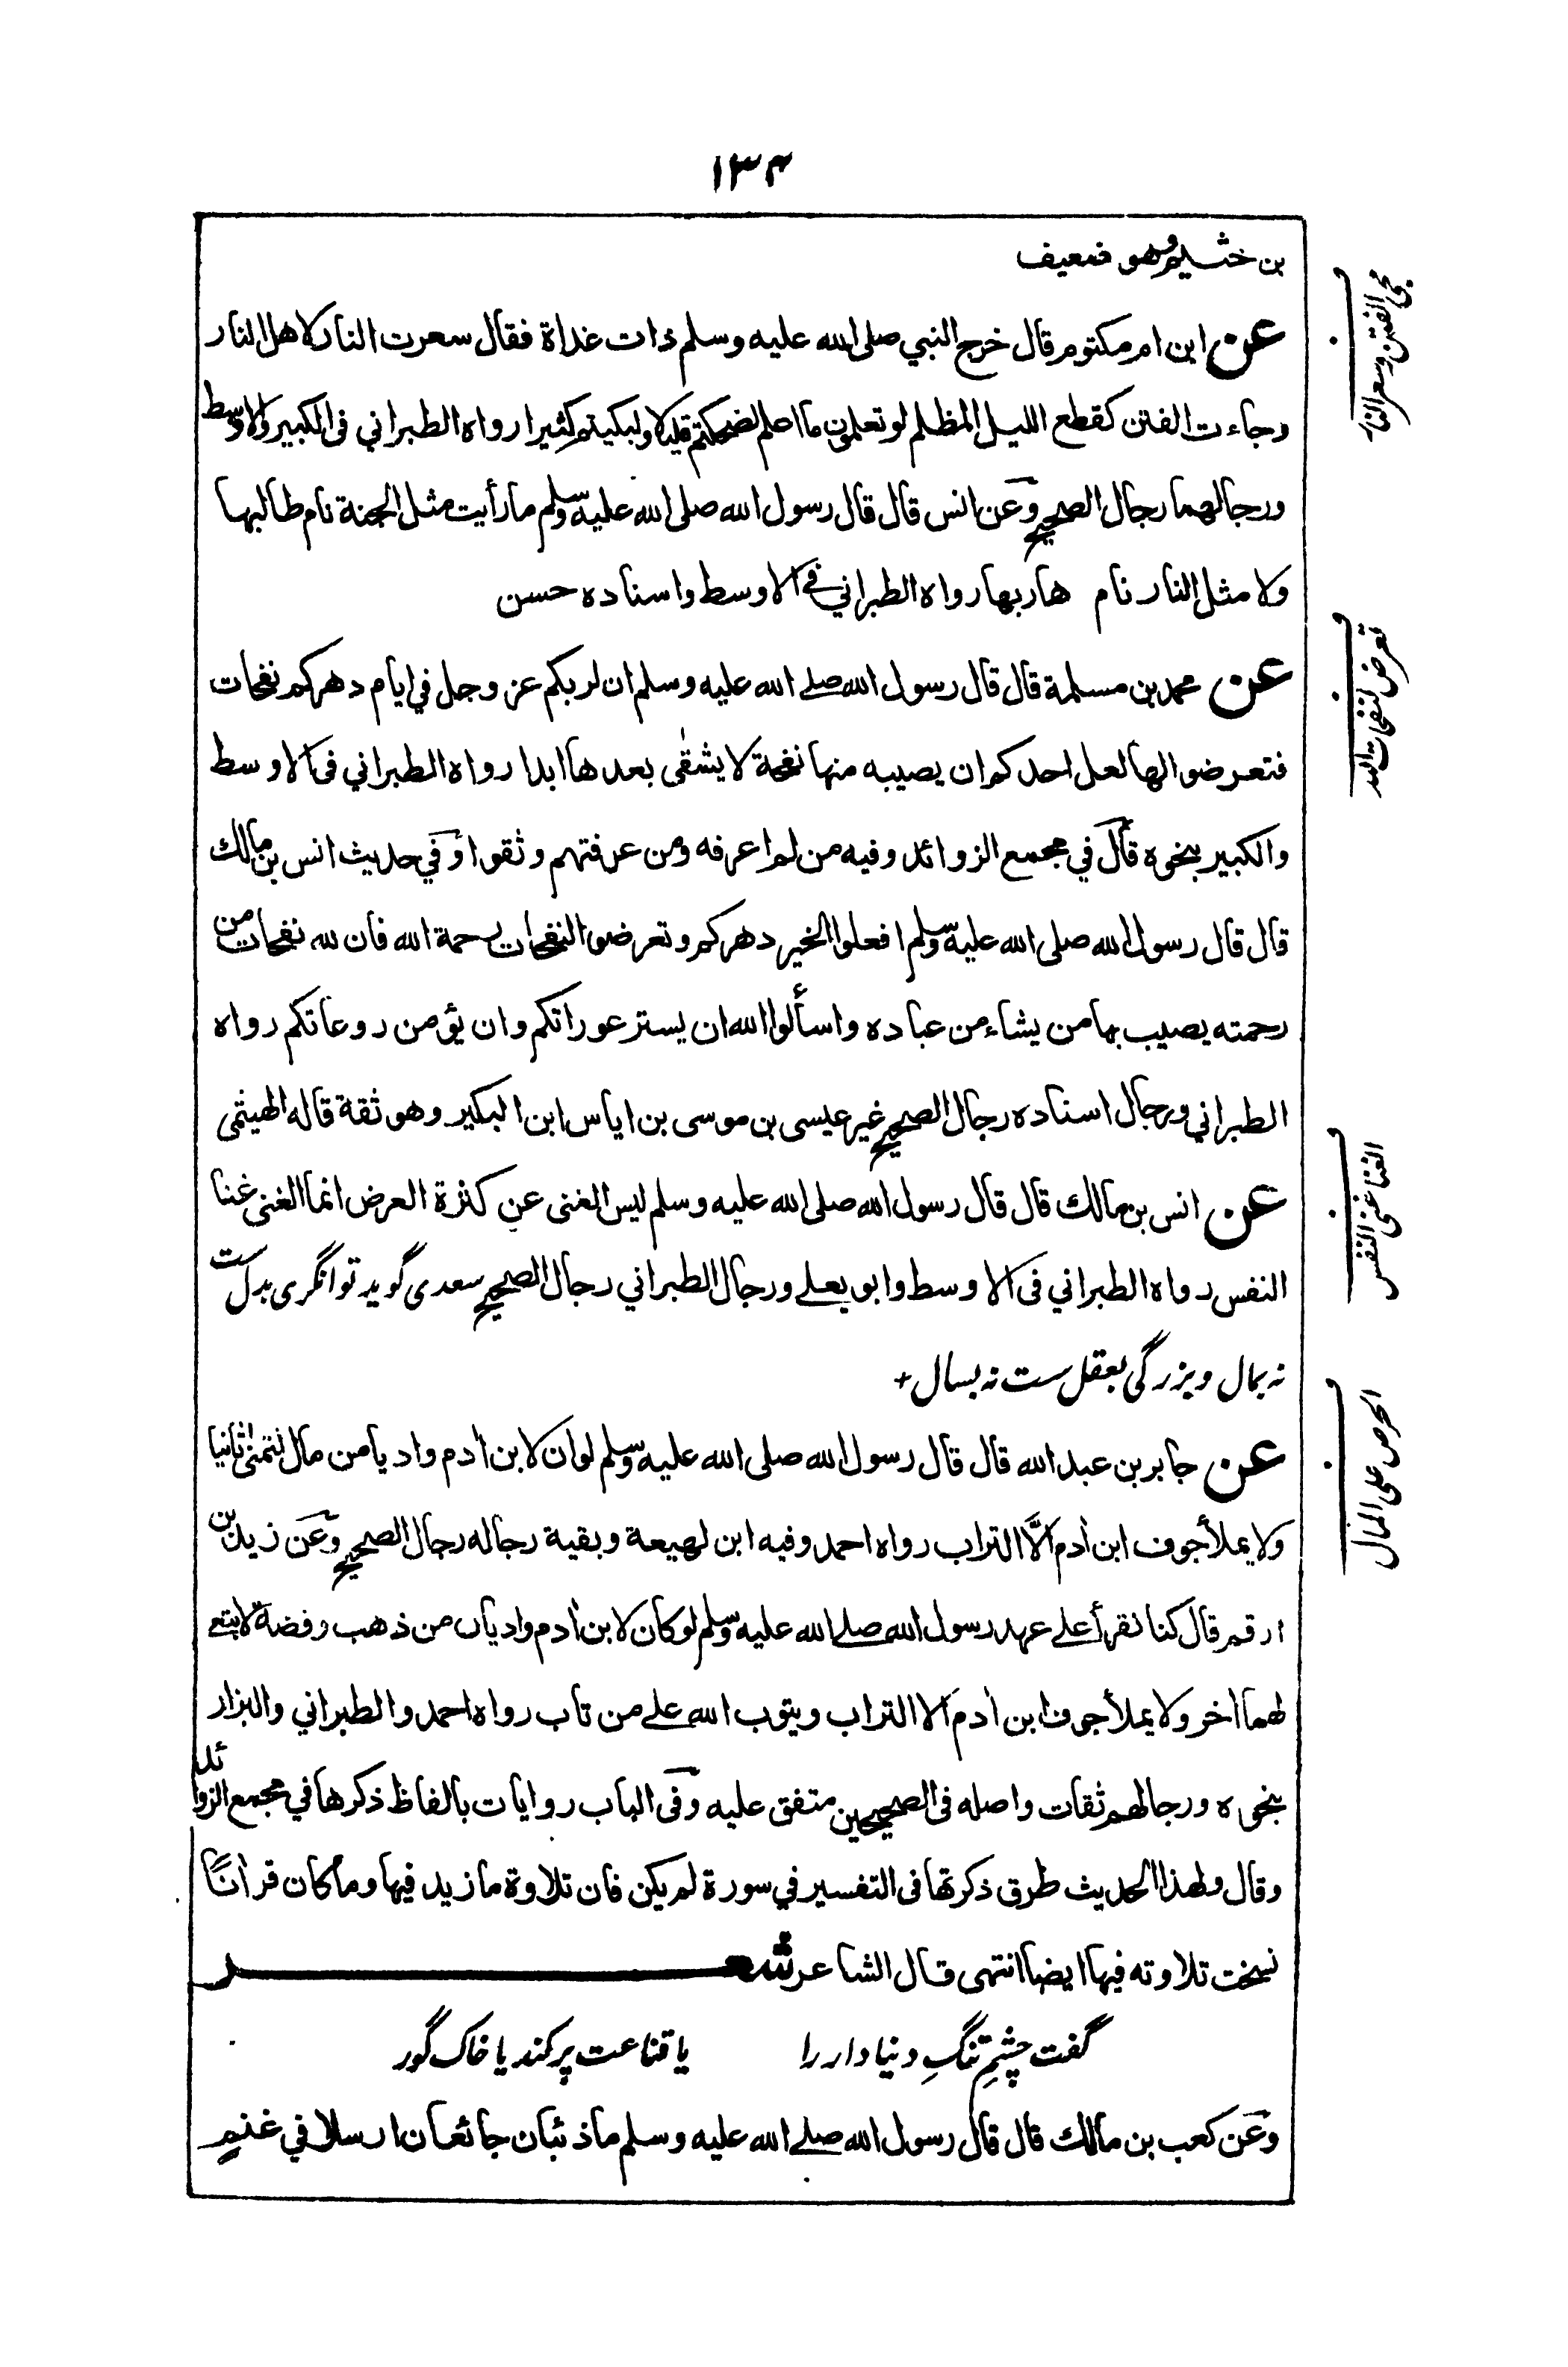 ١٣٤
بن خثيم وهو ضعيف
عن ابن ام مكتوم قال خرج النبي صلى الله عليه وسلم ذات غداة فقال سعرت النار لاهل النار
وجاءت الفتن كقطع الليل المظلم لو تعلمون ما اعلم لضحكتم قليلا ولبكيتم كثيرا رواه الطبراني في الكبير والاوسط
ورجالهما رجال الصحيح وعن انس قال قال رسول الله صلى الله عليه وسلم ما رأيت مثل الجنة نام طالبها
ولا مثل النار نام هاربها رواه الطبراني في الاوسط واسناده حسن
عن محمد بن مسلمة قال قال رسول الله صلے الله عليه وسلم ان لربكم عز وجل في ايام دهركم نفحات
فتعرضوا لها لعل احدكم ان يصيبه منها نفحة لا يشقٰى بعدها ابدا رواه الطبراني في الاوسط
والكبير بنحوه قال في مجمع الزوائد وفيه من لم اعرفه ومن عرفتهم وثقوا وفي حديث انس بن مالك
قال قال رسول الله صلى الله عليه وسلم افعلوا الخير دهركم وتعرضوا النفحات رحمة الله فان لله نفحات من
رحمته يصيب بها من يشاء من عباده واسألوا الله ان يستر عوراتكم وان يؤمن روعاتكم رواه
الطبراني ورجال اسناده رجال الصحيح غير عيسى بن موسى بن اياس ابن البكير وهو ثقة قاله الهيثمى
عن انس بن مالك قال قال رسول الله صلى الله عليه وسلم ليس الغنى عن كثرة العرض انما الغنى غنا
النفس رواه الطبراني في الاوسط وابو يعلے ورجال الطبراني رجال الصحيح سعدى گويد توانگرى بدل ست
نه بمال وبزرگى بعقل ست نه بسال +
عن جابر بن عبد الله قال قال رسول الله صلى الله عليه وسلم لو ان لابن اٰدم واديا من مال لتمنىٰ ثانيا
ولا يملأ جوف ابن اٰدم الَّا التراب رواه احمد وفيه ابن لهيعة وبقية رجاله رجال الصحيح وعن زيد بن
ارقم قال كنا نقرأ علے عهد رسول الله صلے الله عليه وسلم لو كان لابن اٰدم واديان من ذهب وفضة لابتغے
لهما اٰخر ولا يملأ جوف ابن اٰدم الا التراب ويتوب الله علے من تاب رواه احمد والطبراني والبزار
بنحوه ورجالهم ثقات واصله في الصحيحين متفق عليه وفي الباب روايات بالفاظ ذكرها في مجمع الزوائد
وقال ولهذا الحديث طرق ذكرتها في التفسير في سورة لم يكن فان تلاوة ما زيد فيها وما كان قراٰنًا
نسخت تلاوته فيها ايضا انتهى قال الشاعر شعر
گفت چشمِ تنگِ دنيا دار را يا قناعت پر كند يا خاك گور
وعن كعب بن مالك قال قال رسول الله صلے الله عليه وسلم ما ذئبان جائعان ارسلا في غنم
مجى الفتن وسعر النار
تعرض لنفحات الله
الغنا غنى النفس
الحرص على المال